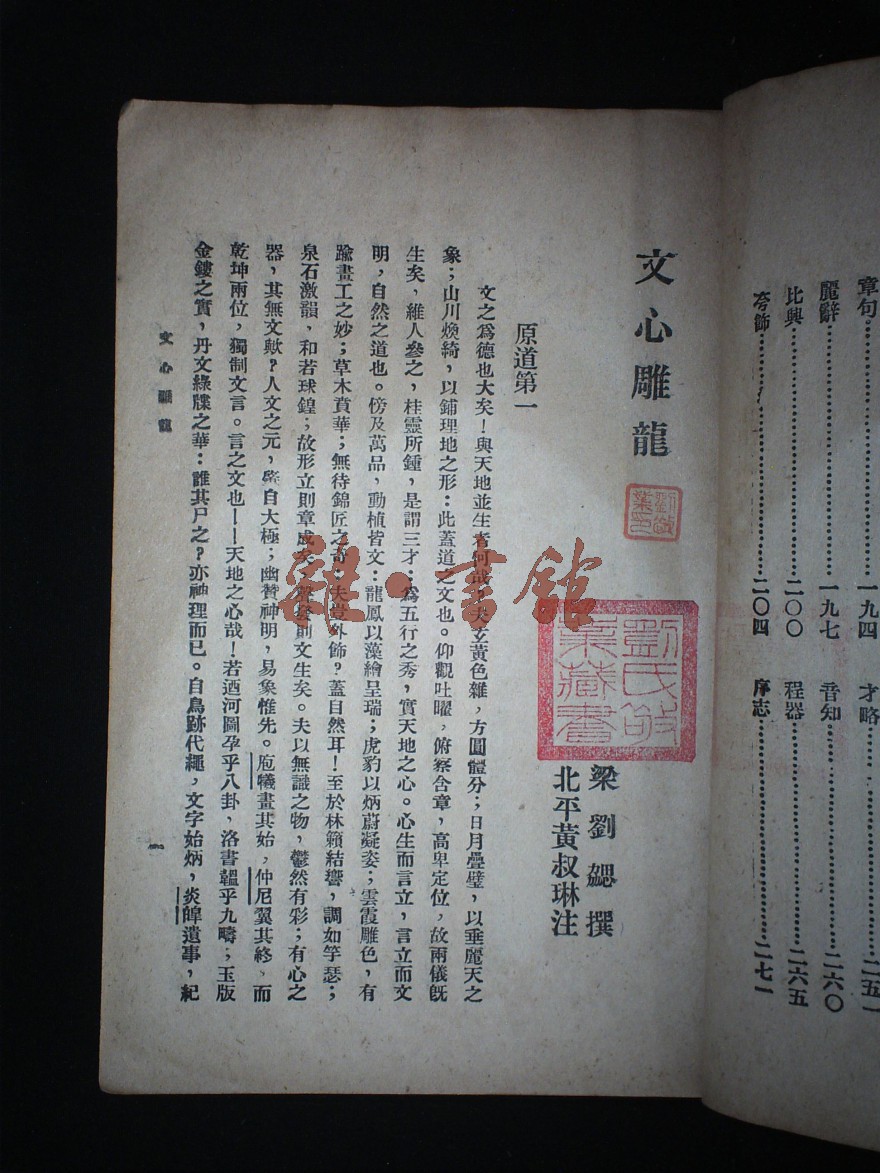 章句……………一九四　才略……………二五一
麗辭……………一九七　音知……………二六〇
比興……………二〇〇　程器……………二六五
夸飾……………二〇四　序志……………二七一
文心雕龍
劉敬業印
劉氏敬業藏書
梁劉勰撰
北平黃叔琳注
原道第一
文之爲德也大矣!與天地並生者何哉?夫玄黃色雜,方圓體分;日月疊璧,以垂麗天之
象;山川煥綺,以鋪理地之形:此蓋道之文也。仰觀吐曜,俯察含章,高卑定位,故兩儀旣
生矣,維人參之,桂靈所鍾,是謂三才:爲五行之秀,實天地之心。心生而言立,言立而文
明,自然之道也。傍及萬品,動植皆文:龍鳳以藻繪呈瑞;虎豹以炳蔚凝姿;雲霞雕色,有
踰畫工之妙;草木賁華;無待錦匠之奇:夫豈外飾?蓋自然耳!至於林籟結響,調如竽瑟;
泉石激韻,和若球鍠;故形立則章成矣,聲發則文生矣。夫以無識之物,鬱然有彩;有心之
器,其無文歟?人文之元,肇自太極;幽贊神明,易象惟先。庖犧畫其始,仲尼翼其終、而
乾坤兩位,獨制文言。言之文也——天地之心哉!若迺河圖孕乎八卦,洛書韞乎九疇;玉版
金鏤之實,丹文綠牒之華:誰其尸之?亦神理而已。自鳥跡代繩,文字始炳,炎皥遺事,紀
文心雕龍
一
雜·書館